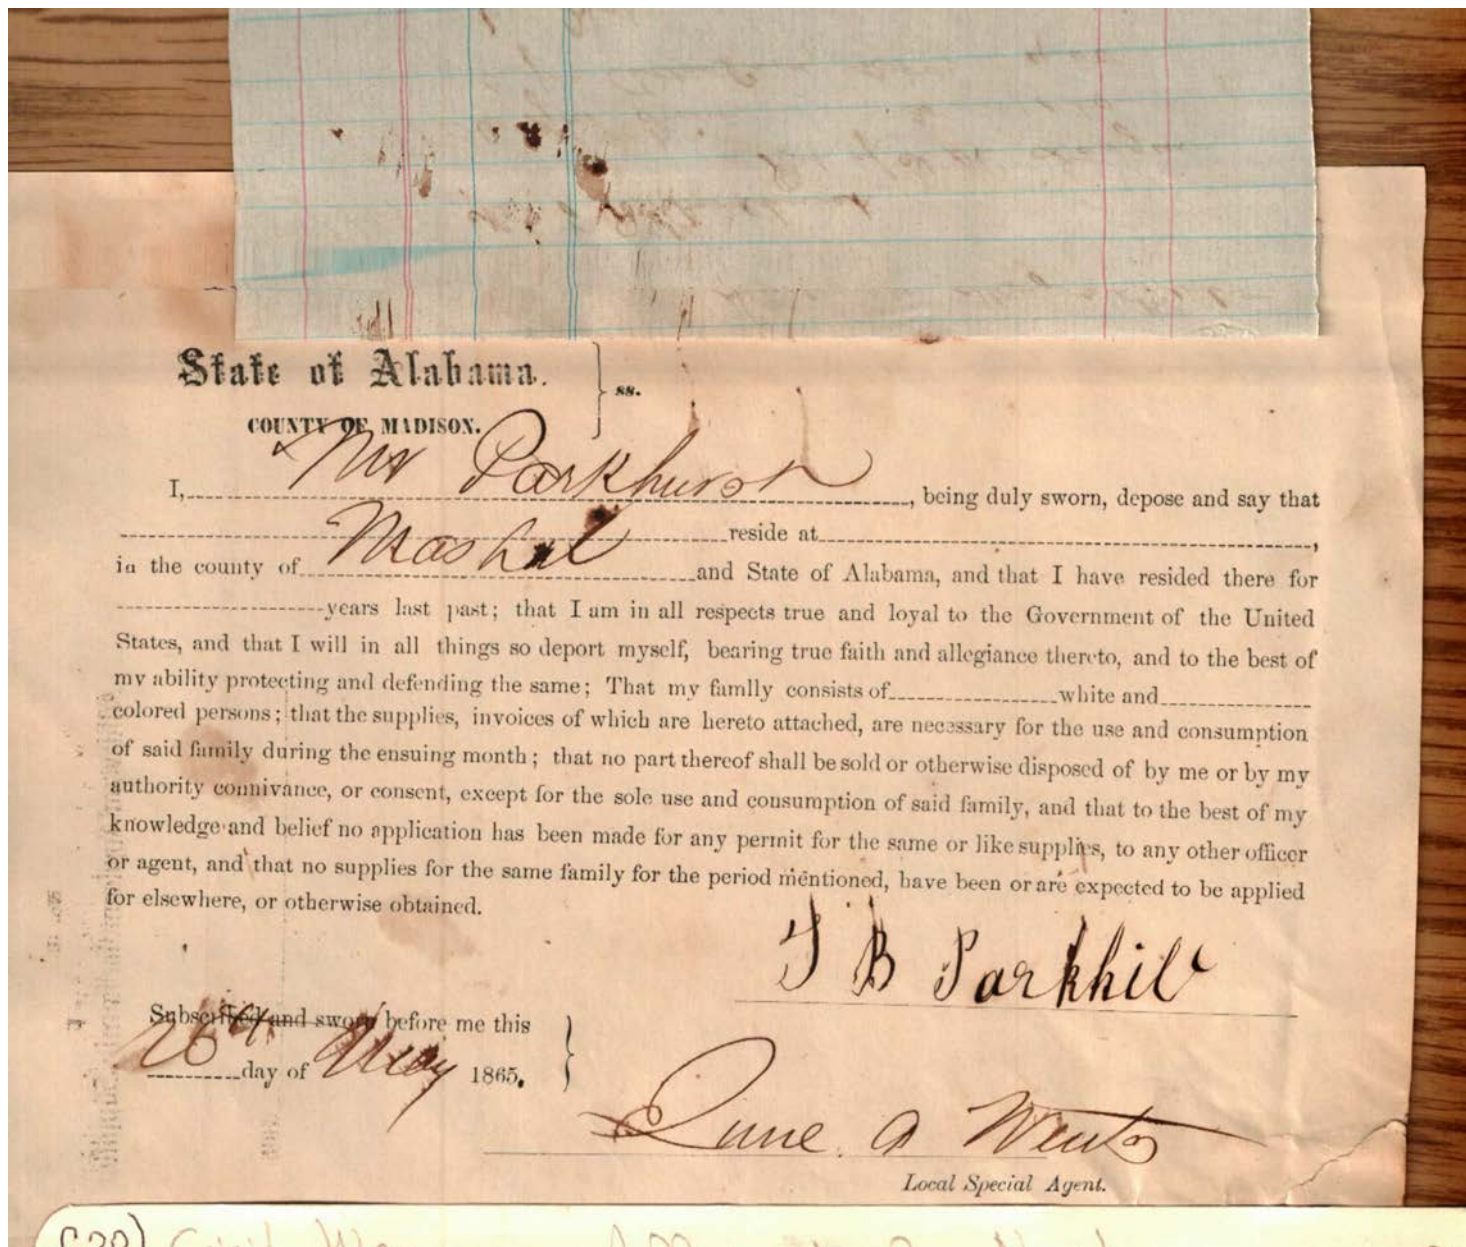 State of Alabama.
ss.
COUNTY OF MADISON.
I, Mr Parkhurst, being duly sworn, depose and say that
reside at,
in the county of Mashal and State of Alabama, and that I have resided there for
years last past; that I am in all respects true and loyal to the Government of the United
States, and that I will in all things so deport myself, bearing true faith and allegiance thereto, and to the best of
my ability protecting and defending the same; That my famlly consists of white and
colored persons; that the supplies, invoices of which are hereto attached, are necessary for the use and consumption
of said family during the ensuing month; that no part thereof shall be sold or otherwise disposed of by me or by my
authority connivance, or consent, except for the sole use and consumption of said family, and that to the best of my
knowledge and belief no application has been made for any permit for the same or like supplies, to any other officer
or agent, and that no supplies for the same family for the period mentioned, have been or are expected to be applied
for elsewhere, or otherwise obtained.
J B Parkhill
Subscribed and sworn before me this
26th day of May 1865.
Local Special Agent.